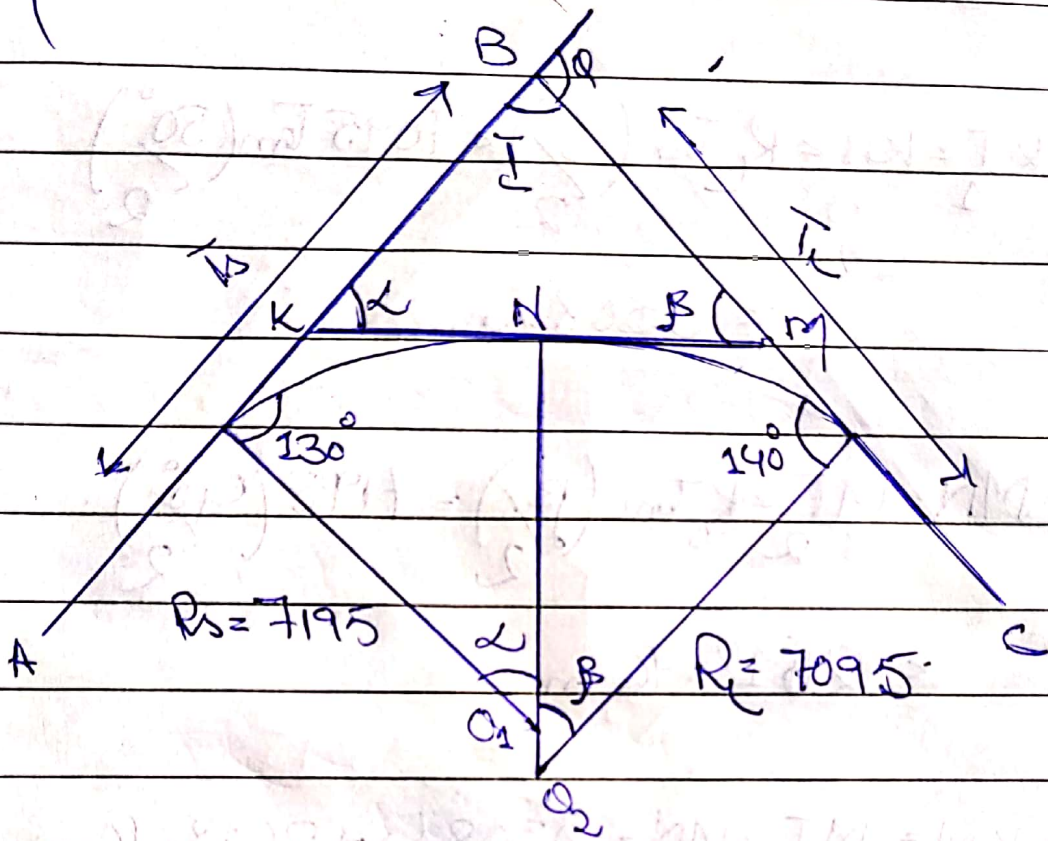 B φ
I
Ts TL
K α N β M
130° 140°
Rs = 7195 α β RL = 7095
A C
O1
O2